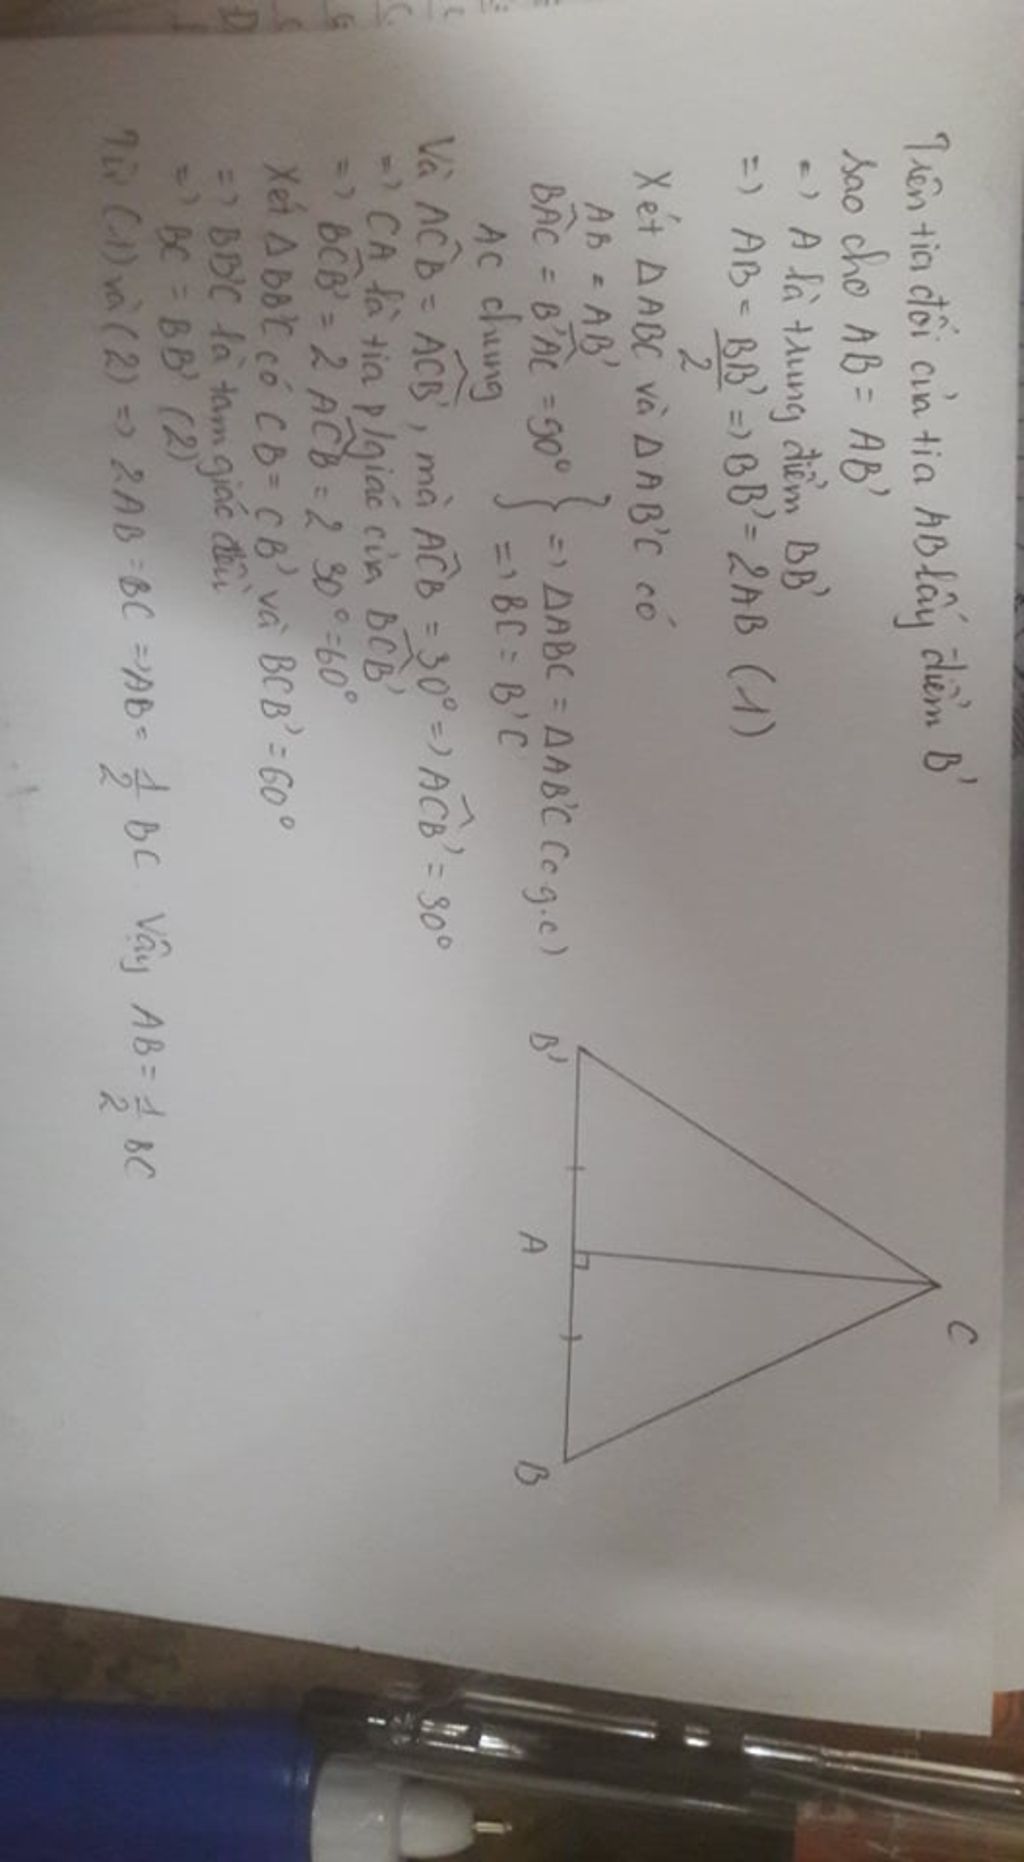 Trên tia đối của tia AB lấy điểm B'
sao cho AB = AB'
=> A là trung điểm BB'
=> AB = BB'/2 => BB' = 2AB (1)
Xét ΔABC và ΔAB'C có
AB = AB'
BAC = B'AC = 90° } => ΔABC = ΔAB'C (c.g.c)
AC chung => BC = B'C
Và ACB = ACB', mà ACB = 30° => ACB' = 30°
=> CA là tia p/giác của BCB'
=> BCB' = 2 ACB = 2 30° = 60°
Xét ΔBB'C có CB = CB' và BCB' = 60°
=> BB'C là tam giác đều
=> BC = BB' (2)
Từ (1) và (2) => 2AB = BC => AB = 1/2 BC. Vậy AB = 1/2 BC
C
B' A B